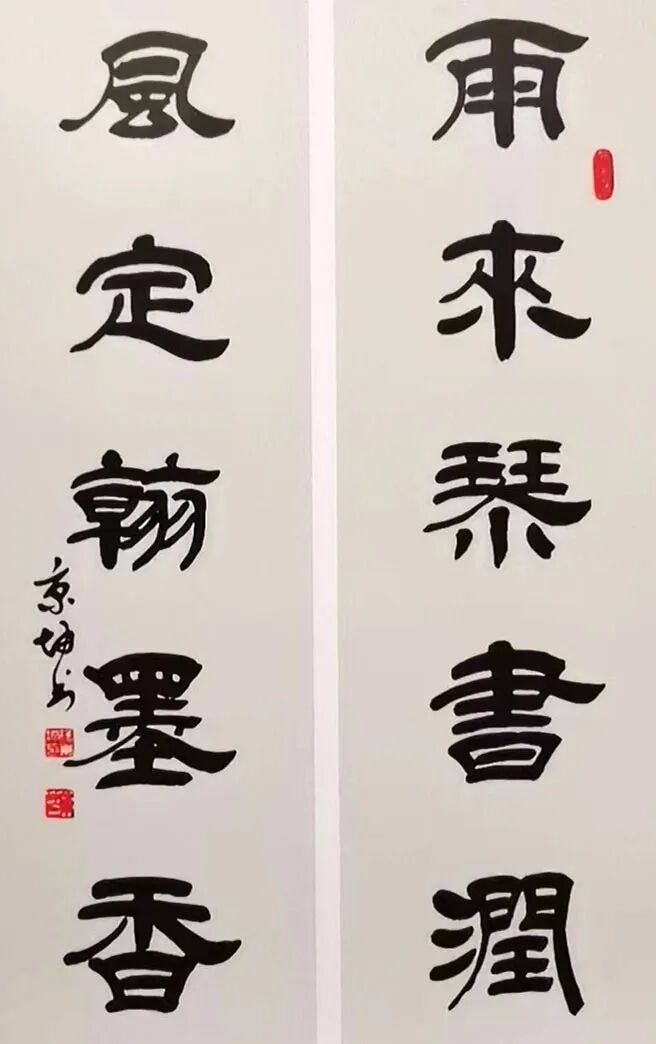 雨來琹書潤
風定翰墨香
京坤书